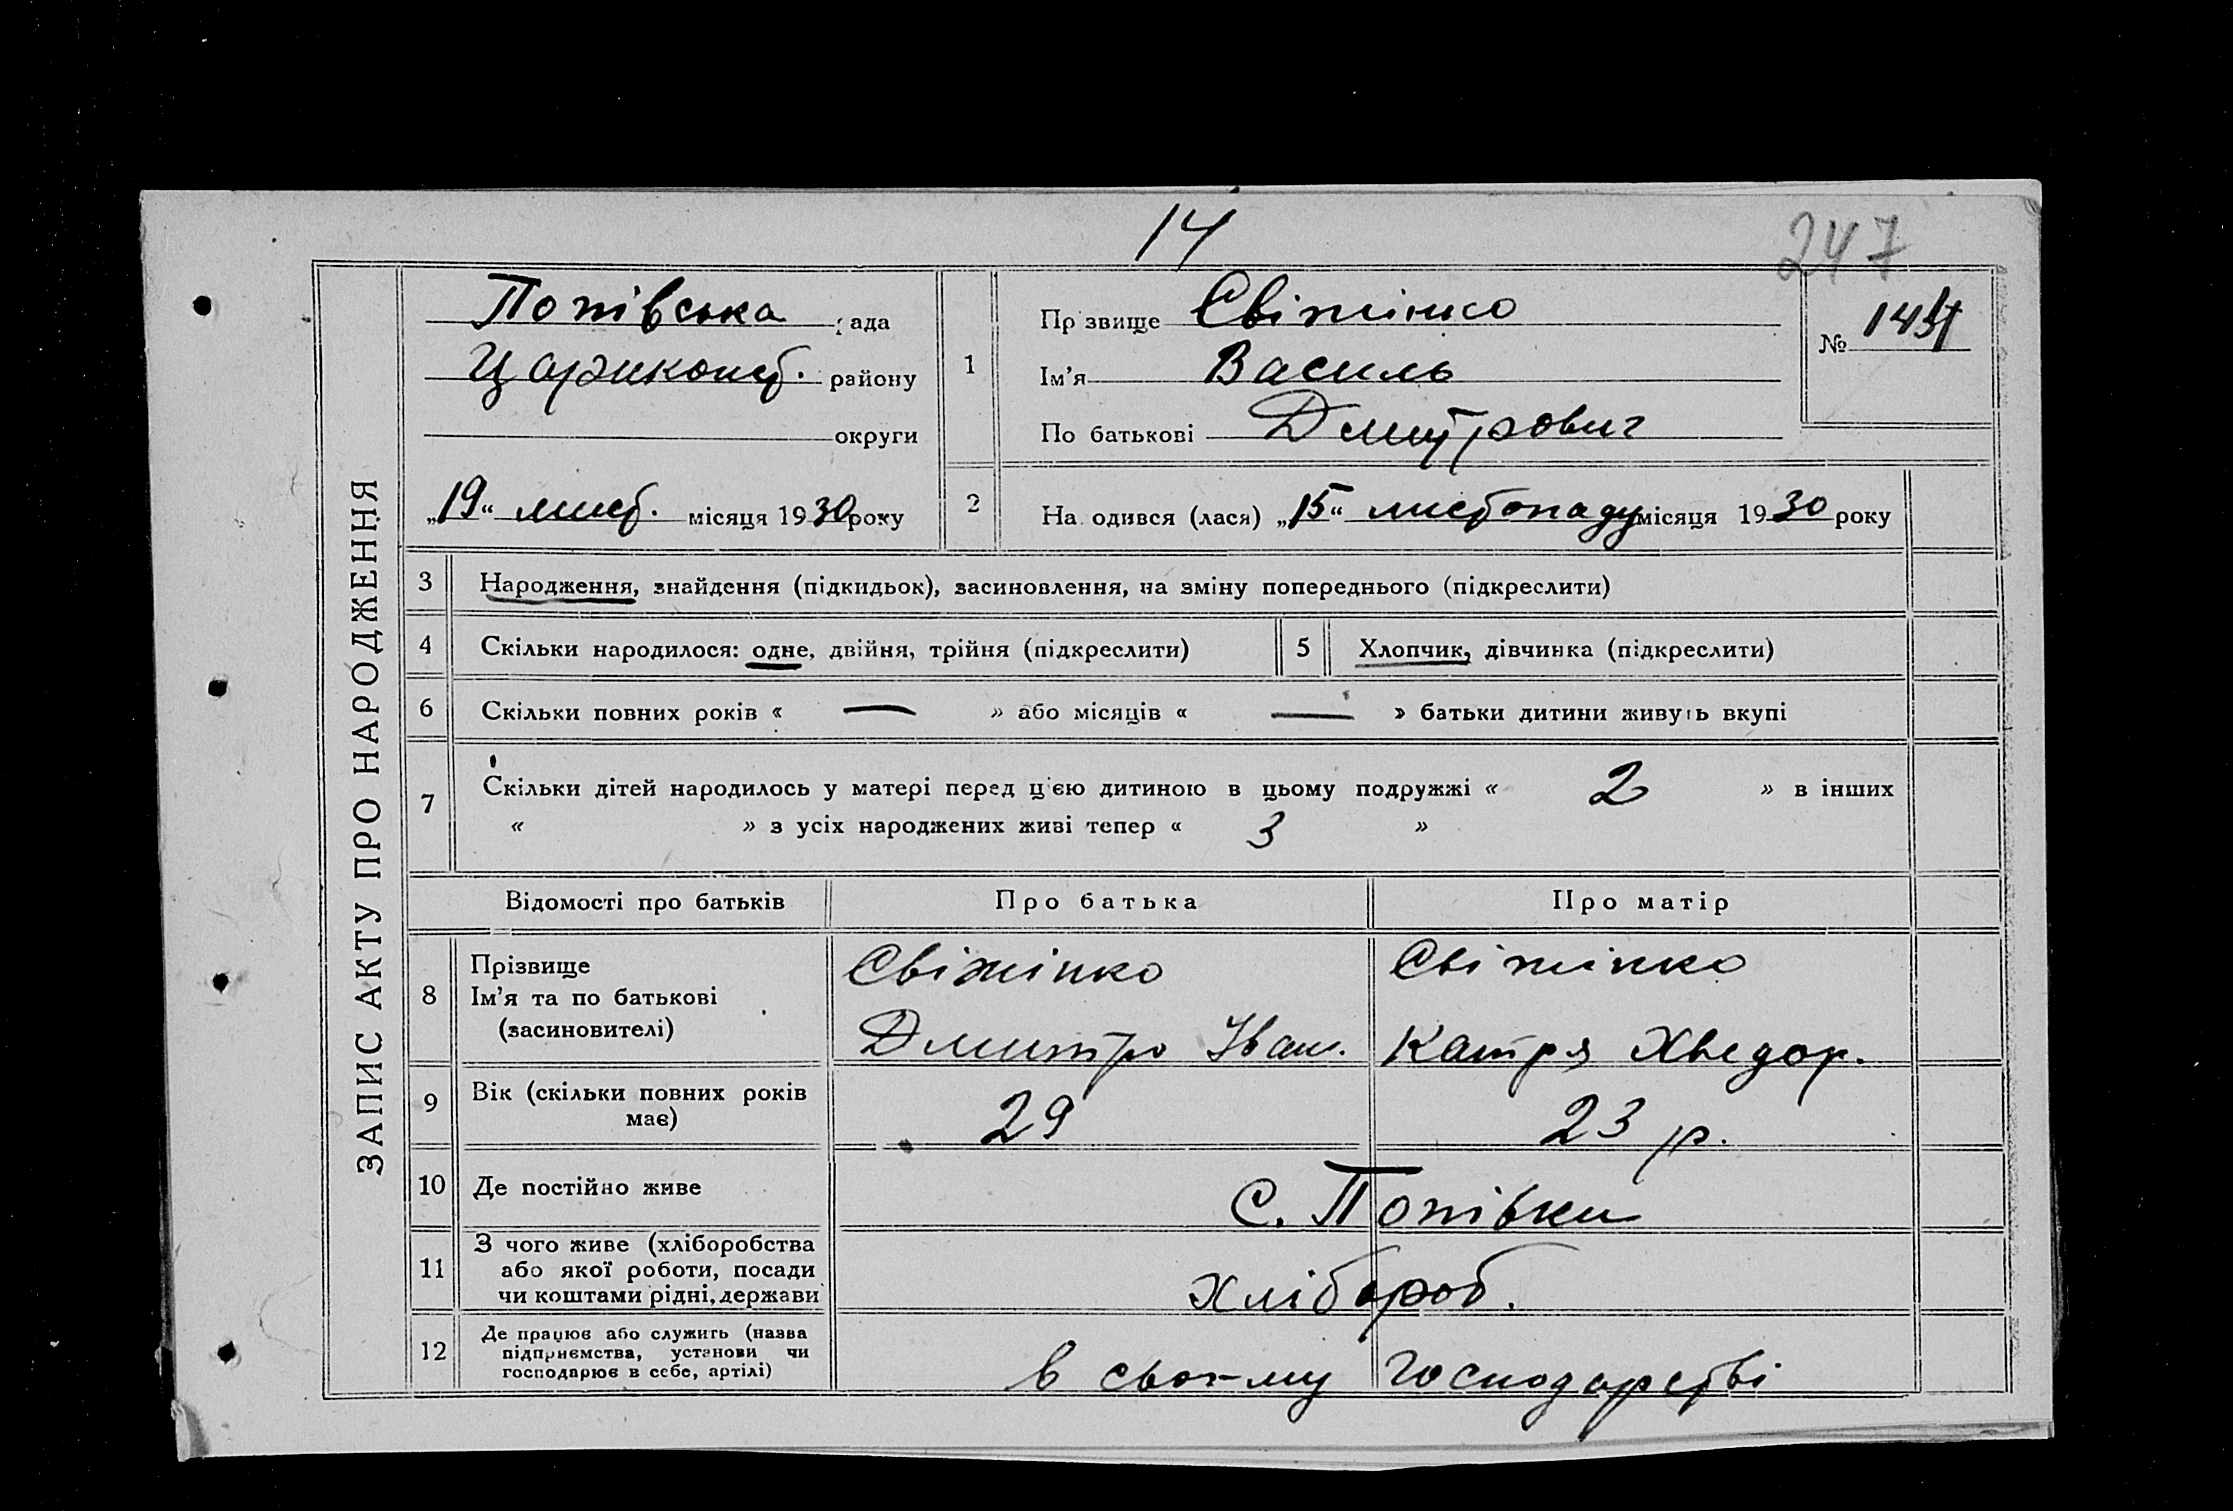 14
247
ЗАПИС АКТУ ПРО НАРОДЖЕННЯ
Попівська рада
Цариконст. району
округи
„19“ лист. місяця 1930 року
1
Прізвище
Ім’я Василь
По батькові Дмитрович
№
2 Народився (лася) „15“ листопаду місяця 1930 року
3 Народження, знайдення (підкидьок), засиновлення, на зміну попереднього (підкреслити)
4 Скільки народилося: одне, двійня, трійня (підкреслити)
5 Хлопчик, дівчинка (підкреслити)
6 Скільки повних років « — » або місяців « — » батьки дитини живуть вкупі
7 Скільки дітей народилось у матері перед цією дитиною в цьому подружжі « 2 » в інших
« » з усіх народжених живі тепер « 3 »
Відомості про батьків Про батька Про матір
8 Прізвище
Ім’я та по батькові
(засиновителі)
Дмитро Іван. Катря Хведор.
9 Вік (скільки повних років
має)
29 23 р.
10 Де постійно живе с. Попівки
11 З чого живе (хліборобства
або якої роботи, посади
чи коштами рідні, держави
Хлібороб.
12 Де працює або служить (назва
підприємства, установи чи
господарює в себе, артілі)
в своєму господарстві